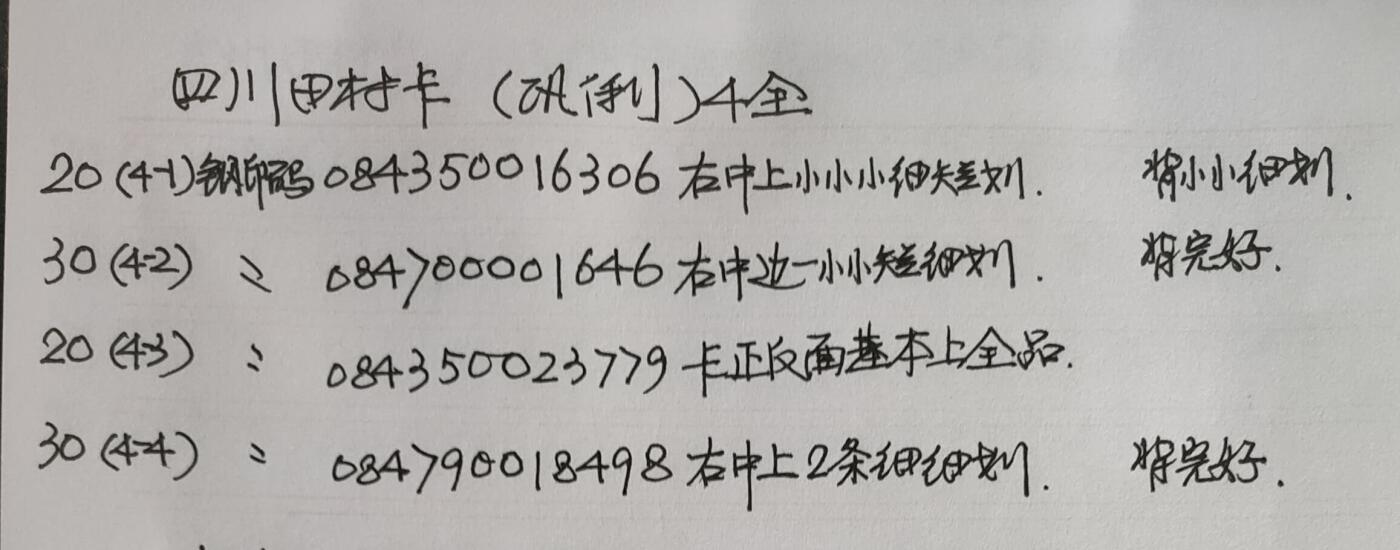 四川田村卡 (巩俐) 4全
20 (4-1) 钢印码 084350016306 右中上小小小细短划. 背小小细划.
30 (4-2) 〃 084700001646 右中边一小小短细划. 背完好.
20 (4-3) 〃 084350023779 卡正反面基本上全品.
30 (4-4) 〃 084790018498 右中上2条细细划. 背完好.